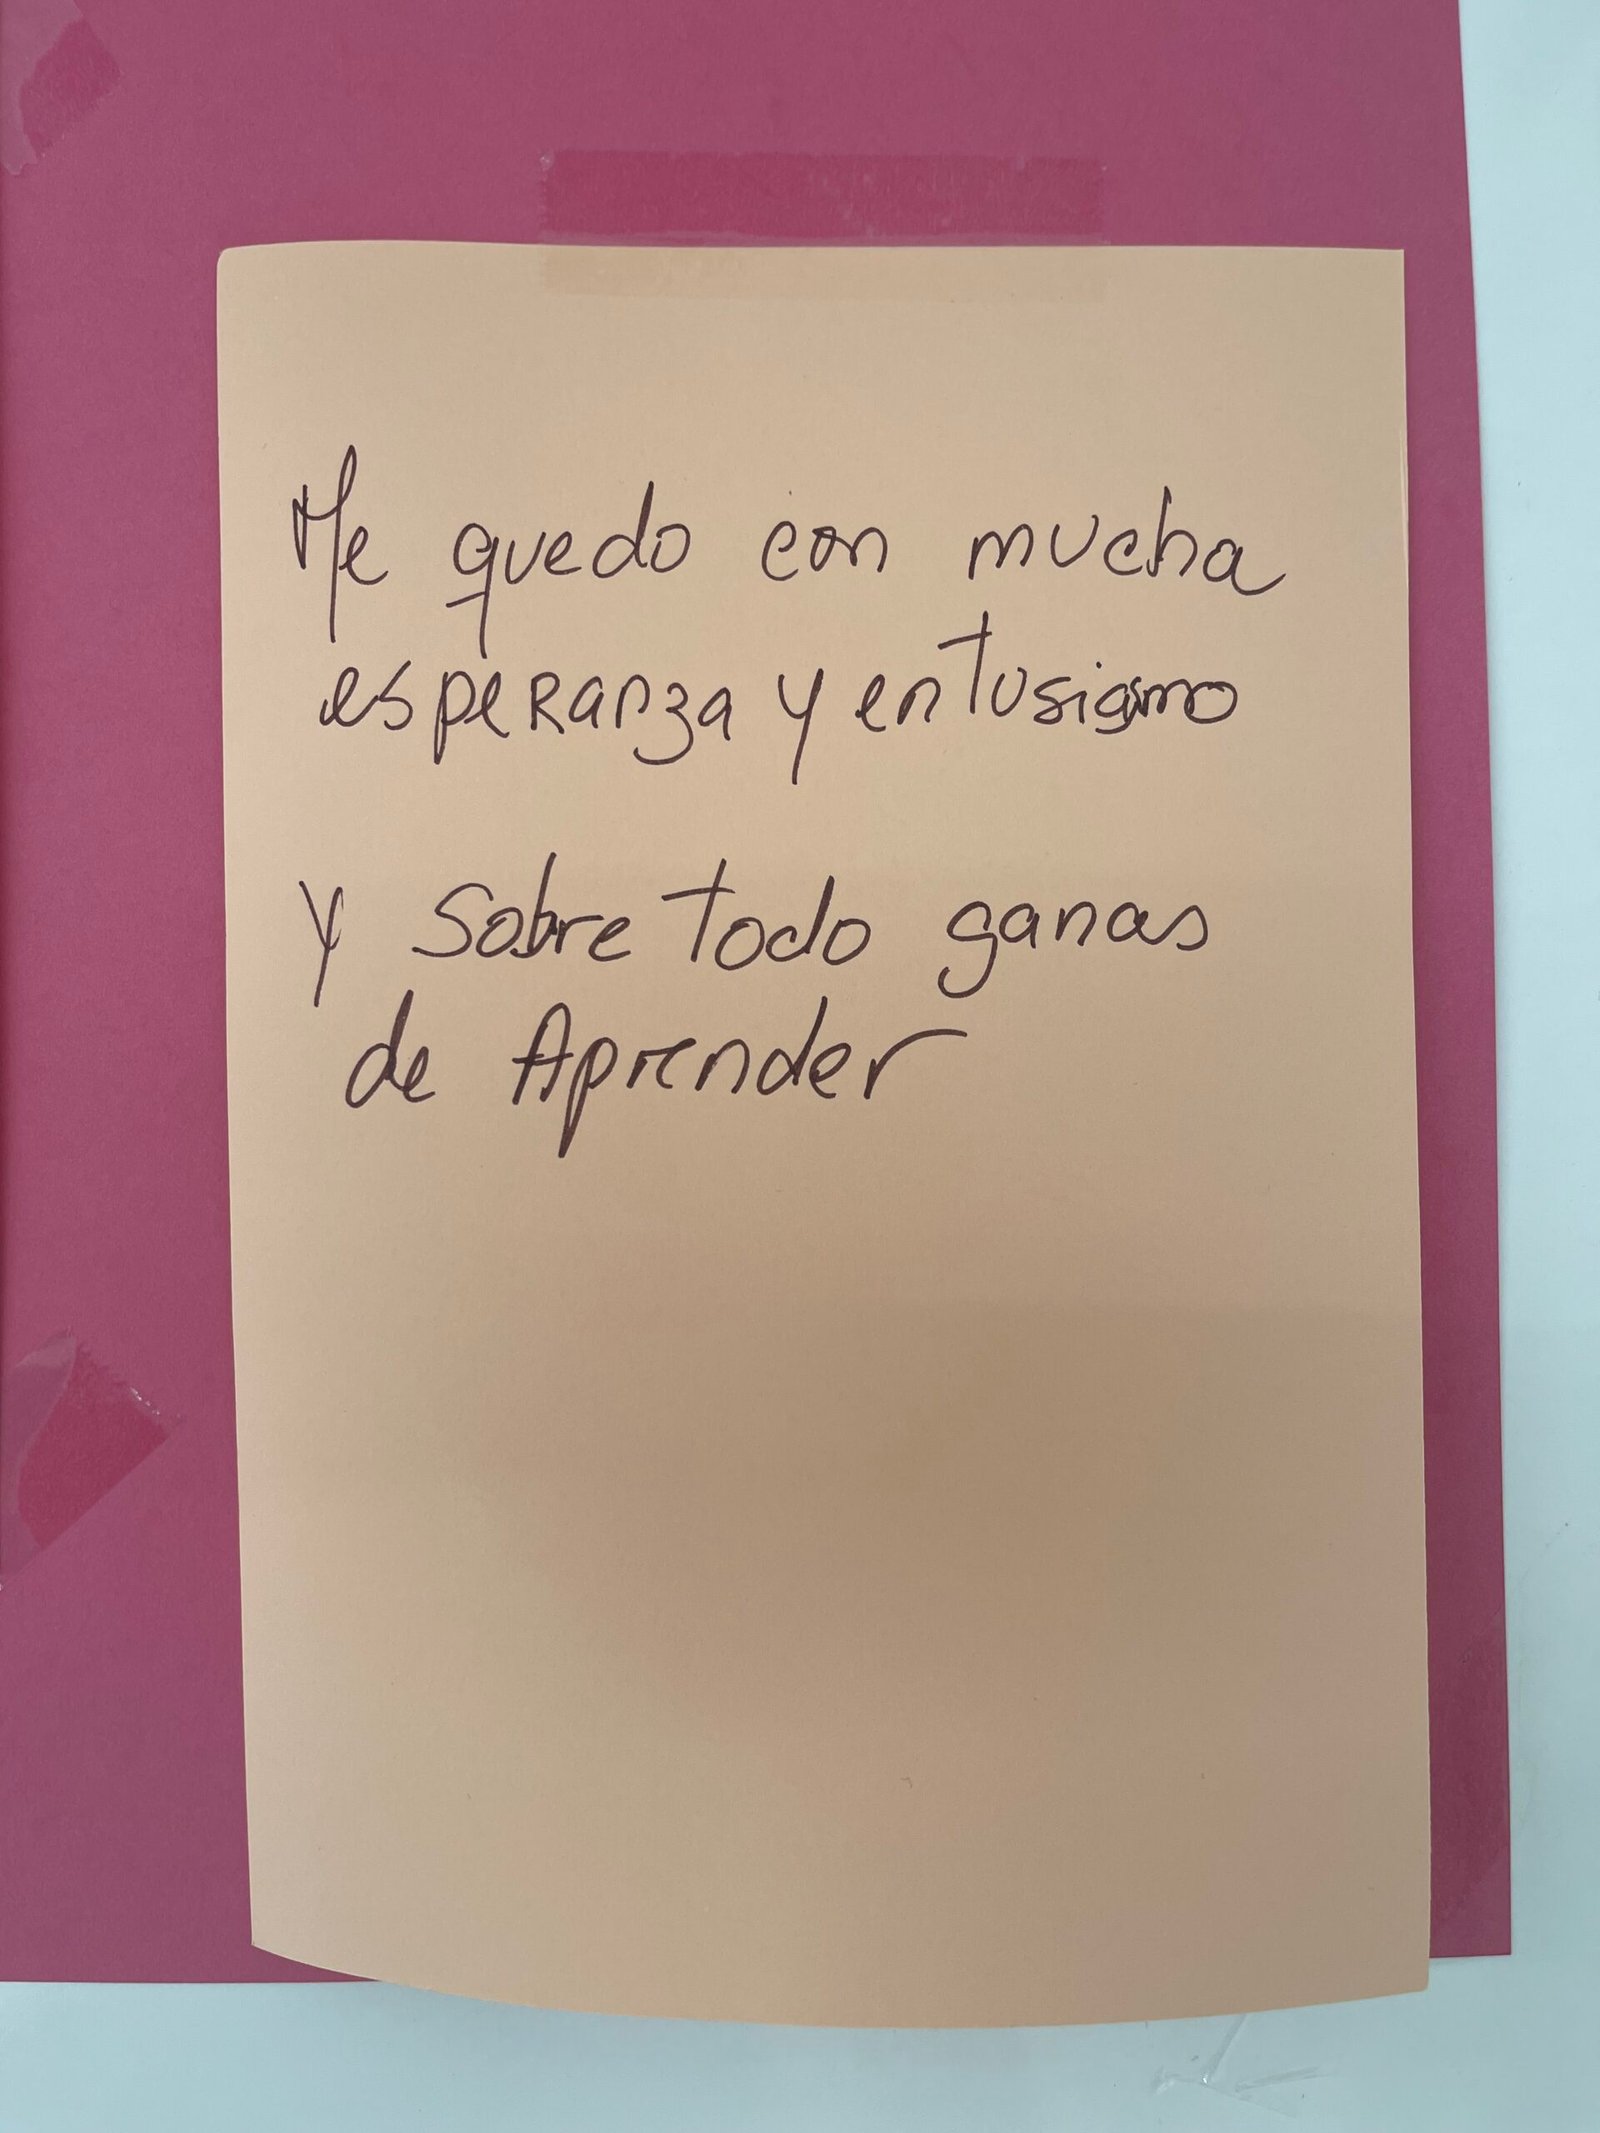 Me quedo con mucha
esperanza y entusiasmo
y sobre todo ganas
de Aprender